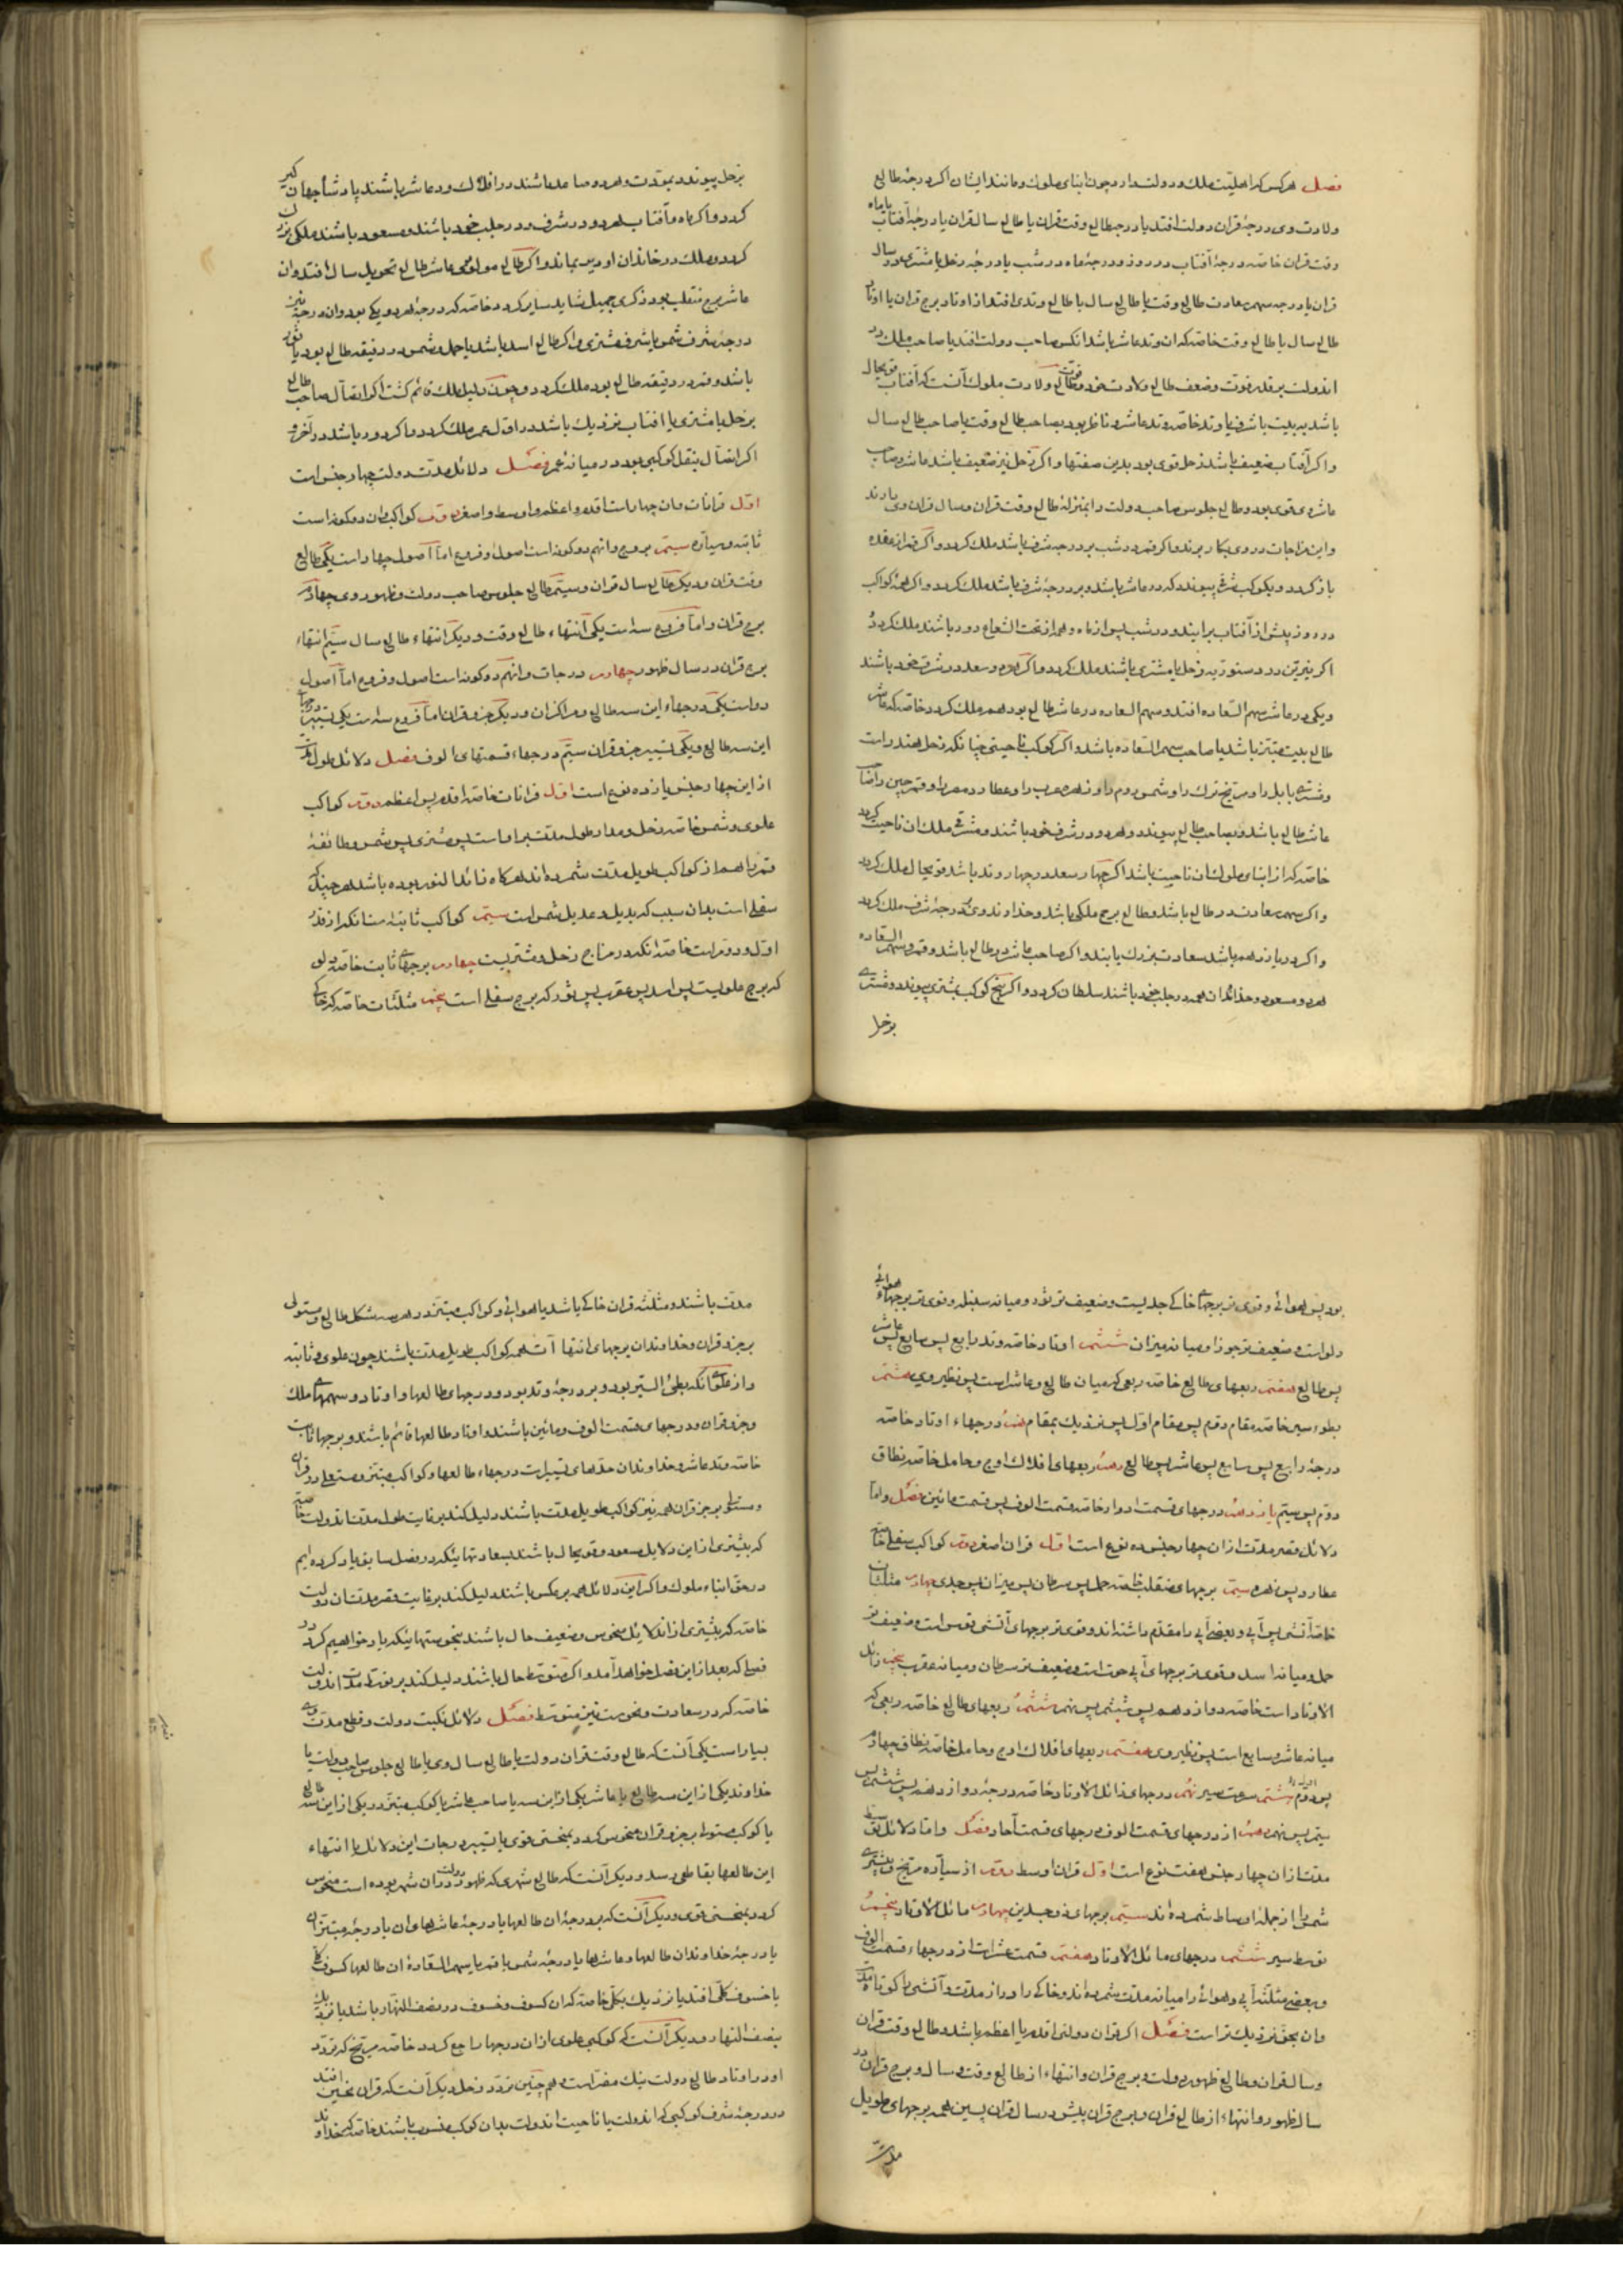 فصل هر کس که اهلیت ملک و دولت دارد چون ابنای ملوک و مانند ایشان اگر درجهٔ طالع
ولادت وی درجهٔ قران دولت افتد یا درجهٔ طالع وقت قران یا طالع سال قران یا درجهٔ آفتاب یا ماه
وقت قران خاصه درجهٔ آفتاب در روز و درجهٔ ماه در شب یا درجهٔ زحل یا مشتری در سال
قران یا درجه سهم سعادت طالع وقت یا طالع سال یا طالع وتدی افتد از اوتاد برج قران یا اوتاد
طالع سال یا طالع وقت خاصه که ان وتد عاشر باشد انکس صاحب دولت افتد یا صاحب ملک در
اندولت بر قدر قوت و ضعف طالع ولادت خود و قوت طالع ولادت ملوک آنست که آفتاب قویحال
باشد به بیت یا شرف یا وتد خاصه وتد عاشر و ناظر بود بصاحب طالع وقت یا صاحب طالع سال
و اکر آفتاب ضعیف باشد زحل قوی بود بدین صفتها و اکر زحل نیز ضعیف باشد عاشر و صاحب
عاشر وی قوی بود و طالع جلوس صاحب دولت را بمنزلهٔ طالع وقت قران و سال قران وی دارند
و این مزاجات در وی بکار برند و اکر قمر در شب بر درجه شرف باشد ملک کردد و اکر قمر از عقده
باز کردد و بکوکب شرقی پیوندد که در عاشر باشد و بر درجهٔ شرف باشد ملک کردد و اکر همهٔ کواکب
در روز پیش از آفتاب برایند و در شب پس از ماه و همه از تحت الشعاع دور باشند ملک کردد
اکر نیرین در دستوریهٔ زحل یا مشتری باشند ملک کردد و اکر هر دو سعد در شرف خود باشند
و یکی در عاشر سهم السعاده افتد و سهم السعاده در عاشر طالع بود هم ملک کردد خاصه که عاشر
طالع بیت مبتز باشد یا صاحب سهم السعاده باشد و اکر کوکب ناحیتی چنانکه زحل هند راست
و مشتری بابل را و مریخ ترک را و شمس روم را و زهره عرب را و عطارد مصر را و قمر چین را صاحب
عاشر طالع باشد و بصاحب طالع پیوندد و هر دو در شرف خود باشند و مشرقی ملک ان ناحیت کردد
خاصه که از ابنای ملوک ان ناحیت باشد اکر چهار سعد در چهار وتد باشد قویحال ملک کردد
و اکر سهم سعادت در طالع باشد و طالع برج ملکی باشد و خداوند وی در درجهٔ شرف ملک کردد
و اکر در یازدهم باشد سعادت بزرک یابند و اکر صاحب عاشر در طالع باشد و قمر و سهم السعاده
هر دو مسعود و خداوندان همه در جلب خود باشند سلطان کردد و اکر پنج کوکب بمشتری پیوندد و مشتری
بزحل
بزحل پیوندد بمودت و هر دو صاعد باشند در افلاک و در عاشر باشند پادشاه جهان کیر
کردد و اکر ماه و آفتاب هر دو در شرف و در جلب خود باشند و مسعود باشند ملکی بزرک
کردد و ملک در خاندان او دیر بماند و اکر طالع مولود عاشر طالع تحویل سال افتد و ان
عاشر برج منقلب بود ذکری جمیل شاید سایر کردد خاصه که درجهٔ هر دو یکی بود و ان درجهٔ نیز
درجهٔ شرف شمس یا شرف مشتری و اکر طالع اسد باشد یا حمل و شمس در دقیقه طالع بود یا ثور
باشد و قمر در دقیقه طالع بود ملک کردد و چون دلیل ملک قائم کشت اکر اتصال صاحب طالع
بزحل یا مشتری یا آفتاب نزدیک باشد در اول عمر ملک کردد و اکر دور باشد در آخر و
اکر اتصال بنقل کوکبی بود در میانهٔ عمر فصل دلائل مدت دولت چهار جنس است
اول قرانات و ان چهار است اقدم و اعظم و اوسط و اصغر دوم کواکب و ان دو کونه است
ثابته و سیاره سیم بروج و انهم دو کونه است اصول و فروع اما اصول چهار است یکی طالع
وقت قران و دیکر طالع سال قران و سیم طالع جلوس صاحب دولت و ظهور وی چهارم
برج قران و اما فروع سه است یکی انتهاء طالع وقت و دیکر انتهاء طالع سال سیم انتهاء
برج قران در سال ظهور چهارم درجات و انهم دو کونه است اصول و فروع اما اصول
دو است یکی درجهاء این سه طالع و مراکز ان و دیکر جزو قران اما فروع سه است یکی تسییر درجهاء
این سه طالع و یکی تسییر جزو قران سیم درجهاء قسمتهای الوف فصل دلائل طول مدت
از این چهار جنس یازده نوع است اول قرانات خاصه اقدم پس اعظم دوم کواکب
علوی و شمس خاصه زحل و مدار طول مدت بر او است پس مشتری پس شمس و طائفهٔ
قمر را هم از کواکب طویل مدت شمرده‌اند هرکاه زائد النور بوده باشد هر چند که
سفلی است بدان سبب که بدیل و عدیل شمس است سیم کواکب ثابته است انکه از قدر
اول و دوم است خاصه انکه در مزاج زحل و مشتریست چهارم برجهای ثابت خاصه دلو
که برج علویست پس اسد پس عقرب پس ثور که برج سفلی است پنجم مثلثات خاصه که خاکی
بود پس هوائی و قوی تر برجهای خاکی جدیست و ضعیف تر ثور و میانه سنبله و قوی تر برجهاء هوائی
دلو است و ضعیف تر جوزا و میانه میزان ششم اوتاد خاصه وتد رابع پس سابع پس عاشر
پس طالع هفتم ربعهای طالع خاصه ربعی که میان طالع و عاشر است پس نظیر وی هشتم
بطوء سیر خاصه مقام دوم پس مقام اول پس نزدیک بمقام نهم درجهاء اوتاد خاصه
درجهٔ رابع پس سابع پس عاشر پس طالع دهم ربعهای افلاک اوج و حامل خاصه نطاق
دوم پس سیم یازدهم درجهای قسمت ادوار خاصه قسمت الوف پس قسمت مائین فصل و اما
دلائل قصر مدت از ان چهار جنس ده نوع است اول قران اصغر دوم کواکب سفلی خاصه
عطارد پس زهره سیم برجهای منقلب خاصه حمل پس سرطان پس میزان پس جدی چهارم مثلثات
خاصه آتشی پس آبی و بعضی آبی را مقدم داشته‌اند و قوی تر برجهای آتشی قوس است و ضعیف تر
حمل و میانه اسد و قوی تر برجهای آبی حوت است و ضعیف تر سرطان و میانه عقرب پنجم زائل
الاوتاد است خاصه دوازدهم پس ششم پس نهم ششم ربعهای طالع خاصه ربعی که
میانه عاشر و سابع است پس نظیر وی هفتم ربعهای افلاک اوج و حامل خاصه نطاق چهارم
پس دوم هشتم سرعت سیر نهم درجهای زائل الاوتاد خاصه درجهٔ دوازدهم پس ششم پس
سیم پس نهم دهم از درجهای قسمت الوف درجهای قسمت آحاد فصل و اما دلائل توسط
مدت از ان چهار جنس هفت نوع است اول قران اوسط دوم از سیاره مریخ و بیشتری
شمس را از جمله اوساط شمرده‌اند سیم برجهای ذو جسدین چهارم مائل الاوتاد پنجم
توسط سیر ششم درجهای مائل الاوتاد هفتم قسمت عشرات از درجهاء قسمت الوف
و بعضی مثلثه آبی و هوائی را میانه مدت شمرده‌اند و خاکی را دراز مدت و آتشی را کوتاه مدت
و ان بحق نزدیک تر است فصل اکر قران دولتی اقدم یا اعظم باشد و طالع وقت قران
و سال قران و طالع ظهور دولت و برج قران و انتهاء از طالع وقت و سال و برج قران در
سال ظهور و انتهاء از طالع قران و برج قران پیش در سال قران پسین همه برجهای طویل
مدت
مدت باشند و مثلثه قران خاکی باشد یا هوائی و کواکب مبتز در هر سه شکل طالع و مستولی
بر جزو قران و خداوندان برجهای انتها آت همه کواکب طویل مدت باشند چون علوی و ثابته
و از علوی انکه بطئ السیر بود و بر درجهٔ وتد بود و درجهای طالعها و اوتاد و سهمهای ملک
و جزو قران و درجهای قسمت الوف و مائین باشند و اوتاد طالعها قائم باشند و برجها ثابت
خاصه وتد عاشر و خداوندان حدهای تسییرات درجهاء طالعها و کواکب مبتز و مستعلی در قران
و مستولی بر جزو قران همه نیز کواکب طویل مدت باشند دلیل کند بر غایت طول مدت اندولت خاصه
که بیشتری از این دلایل مسعود و قویحال باشند بسعادتهائیکه در فصل سابق یاد کرده ایم
در حق ابناء ملوک و اکر این دلائل همه بر عکس باشند دلیل کند بر غایت قصر مدت ان دولت
خاصه که بیشتری از اندلائل منحوس و ضعیف حال باشند بنحوستهائیکه یاد خواهیم کرد در
فصلی که بعد از این فصل خواهد آمد و اکر متوسط حال باشند دلیل کند بر توسط مدت اندولت
خاصه که در سعادت و نحوست نیز متوسط فصل دلائل نکبت دولت و قطع مدت وی
بسیار است یکی آنست که طالع وقت قران دولت یا طالع سال وی یا طالع جلوس صاحب دولت یا
خداوند یکی از این سه طالع یا عاشر یکی از این سه یا صاحب عاشر یا کوکب مبتز در یکی از این سه طالع
یا کوکب مستولی بر جزو قران منحوس کردد بنحسی قوی یا تسییر درجات این دلائل یا انتهاء
این طالعها بقاطعی رسد و دیکر آنست که طالع شهری که ظهور دولت در ان شهر بوده است منحوس
کردد بنحسی قوی و دیکر آنست که بر درجهٔ ان طالعها یا درجهٔ عاشرهای ان یا درجهٔ مبتز ان
یا درجهٔ خداوندان طالعها و عاشرها یا درجهٔ شمس یا قمر یا سهم السعادهٔ ان طالعها کسوف کلی
یا خسوف کلی افتد یا نزدیک بکلی خاصه که ان کسوف و خسوف در نصف النهار باشد یا نزدیک
بنصف النهار و دیکر آنست که کوکبی علوی از ان درجها راجع کردد خاصه مریخ که تردد
او در اوتاد طالع دولت نیک مضر است و هم چنین تردد زحل و دیکر آنست که قران نحسین افتد
در درجهٔ شرف کوکبی که اندولت یا ناحیت اندولت بدان کوکب منسوب باشند خاصه که خداوند